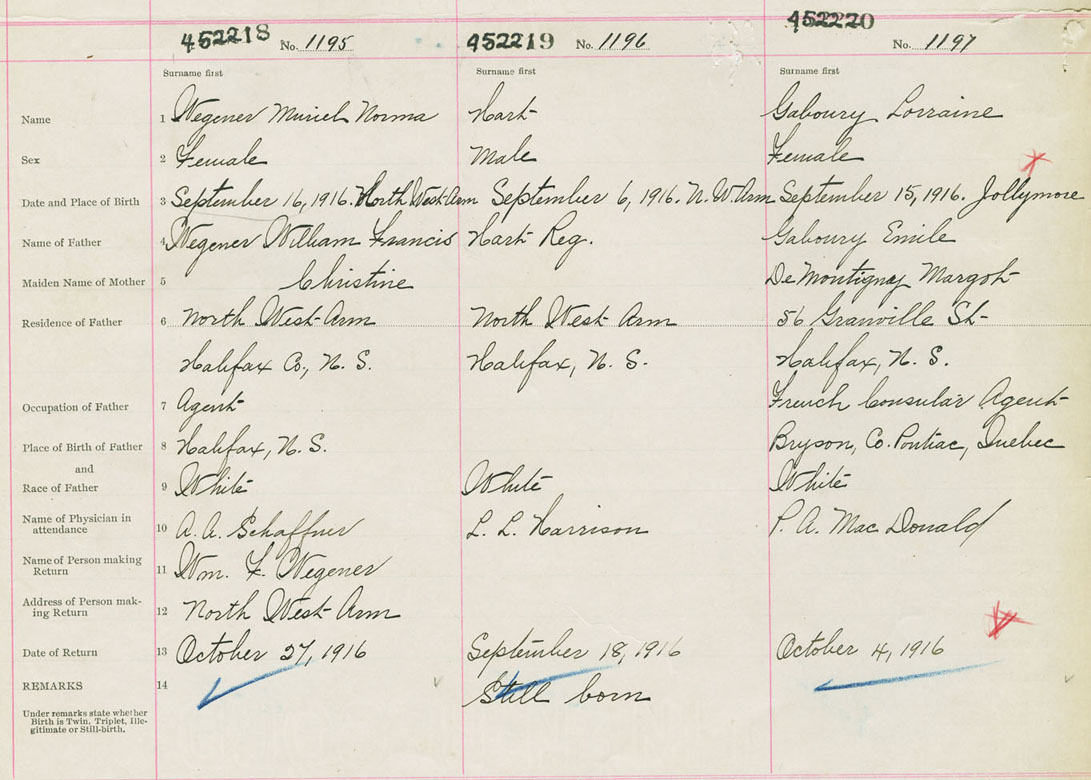 452218 No. 1195 452219 No. 1196 452220 No. 1197
Surname first Surname first Surname first
Name 1 Wegener Muriel Norma Hart Gaboury Lorraine
Sex 2 Female Male Female
Date and Place of Birth 3 September 16, 1916. North West Arm September 6, 1916. N. W. Arm September 15, 1916. Jollymore
Name of Father 4 Wegener William Francis Hart Reg. Gaboury Emile
Maiden Name of Mother 5 Christine De Montigney Margot
Residence of Father 6 North West Arm North West Arm 56 Granville St
Halifax Co., N. S. Halifax, N. S. Halifax, N. S.
Occupation of Father 7 Agent French Consular Agent
Place of Birth of Father 8 Halifax, N. S. Bryson, Co. Pontiac, Quebec
and
Race of Father 9 White White White
Name of Physician in
attendance 10 A. A. Schaffner L. L. Harrison P. A. Mac Donald
Name of Person making
Return 11 Wm. F. Wegener
Address of Person mak-
ing Return 12 North West Arm
Date of Return 13 October 27, 1916 September 18, 1916 October 4, 1916
REMARKS 14 Still born
Under remarks state whether
Birth is Twin, Triplet, Ille-
gitimate or Still-birth.